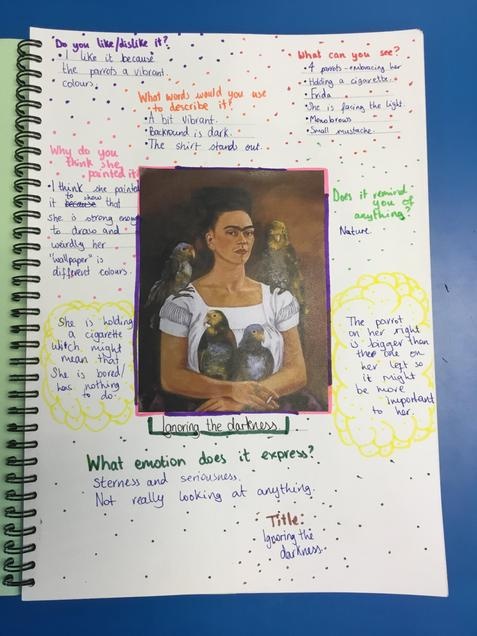 Do you like/dislike it?
• I like it because
the parrots a vibrant
colours.
What can you see?
• 4 parrots - embracing her
• Holding a cigarette.
• Frida
• She is facing the light.
• Monobrows
• Small mustache.
What words would you use
to describe it?
• A bit vibrant.
• Backround is dark.
• The shirt stands out.
Why do you
think she
painted it?
• I think she painted
it to show that
she is strong enough
to draw and
weirdly her
"wallpaper" is
different colours.
Does it remind
you of
anything?
Nature.
She is holding
a cigarette
witch might
mean that
She is bored/
has nothing
to do.
The parrot
on her right
is bigger than
the one on
her left so
it might
be more
important
to her.
Ignoring the darkness
What emotion does it express?
Sterness and seriousness.
Not really looking at anything.
Title:
Ignoring the
darkness.